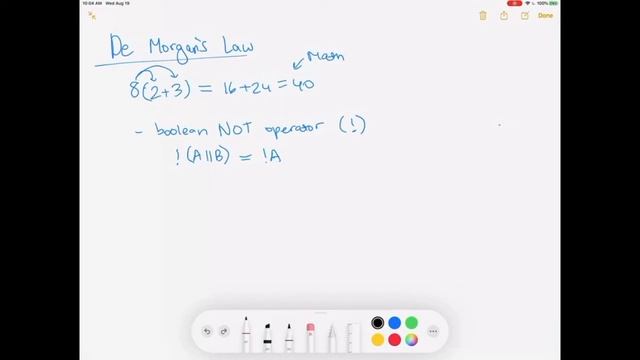 10:04 AM Wed Aug 19
100%
Done
De Morgan's Law
Math
8(2+3) = 16+24 = 40
- boolean NOT operator (!)
! (A||B) = !A